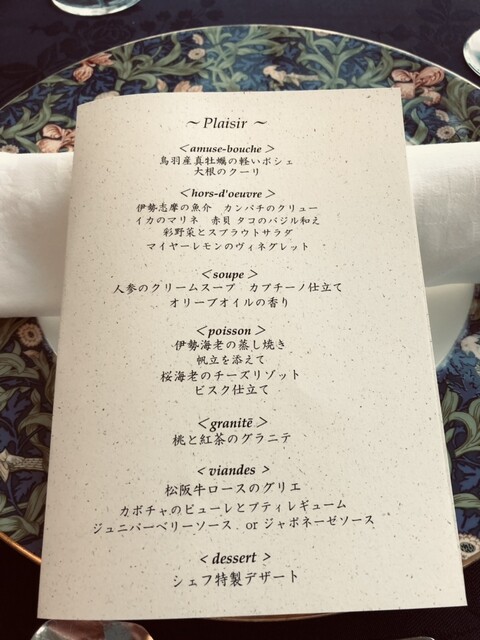 ～ Plaisir ～
< amuse-bouche >
鳥羽産真牡蠣の軽いポシェ
大根のクーリ
< hors-d'oeuvre >
伊勢志摩の魚介　カンパチのクリュー
イカのマリネ　赤貝 タコのバジル和え
彩野菜とスプラウトサラダ
マイヤーレモンのヴィネグレット
< soupe >
人参のクリームスープ　カプチーノ仕立て
オリーブオイルの香り
< poisson >
伊勢海老の蒸し焼き
帆立を添えて
桜海老のチーズリゾット
ビスク仕立て
< granitē >
桃と紅茶のグラニテ
< viandes >
松阪牛ロースのグリエ
カボチャのピューレとプティレギューム
ジュニパーベリーソース or ジャポネーゼソース
< dessert >
シェフ特製デザート